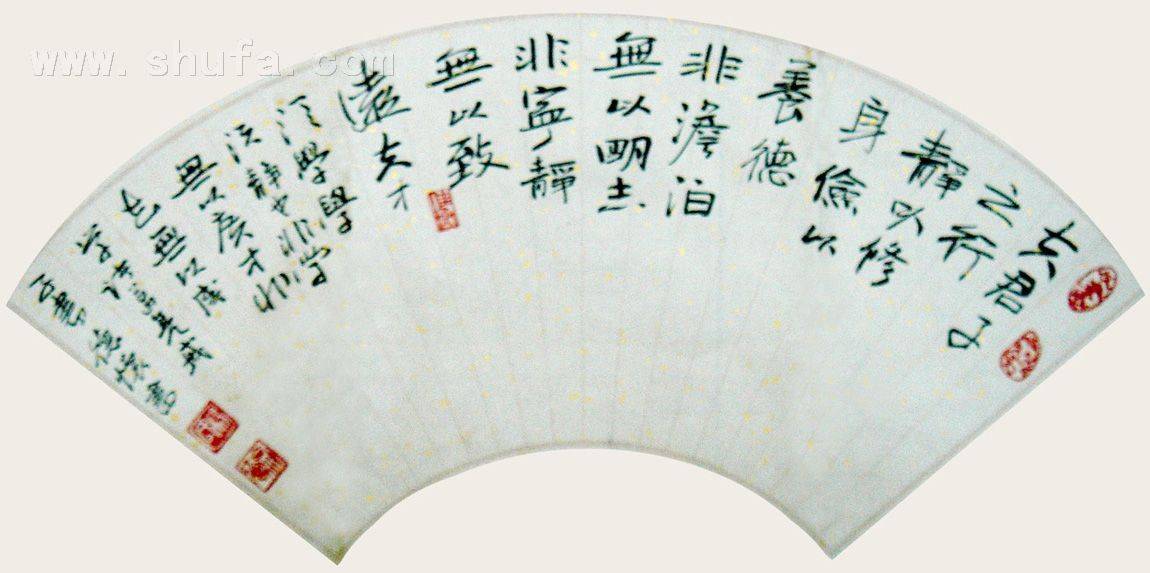 夫君子
之行
静以修
身儉以
養德
非澹泊
無以明志
非寧靜
無以致
遠夫才
須學學
須靜也非學
無以廣才非
志無以成
學
www.shufa.com